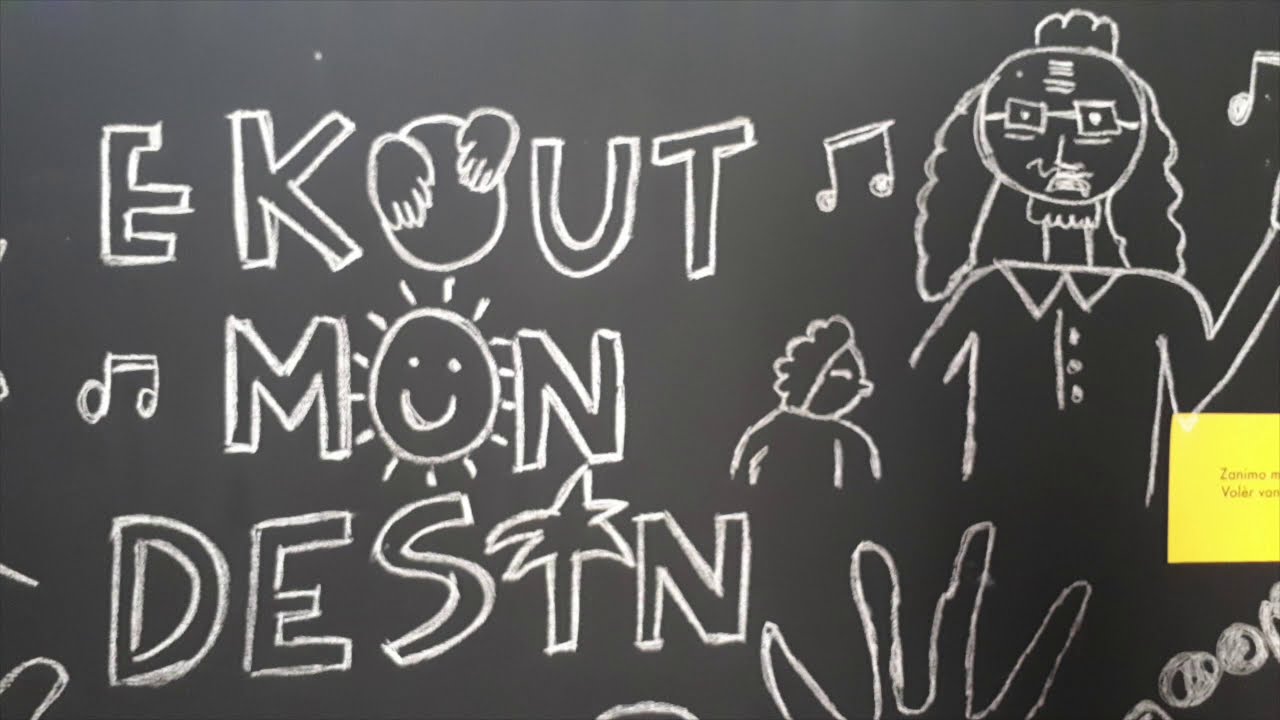 EKOUT
MON
DESIN
Zanimo
Volèr